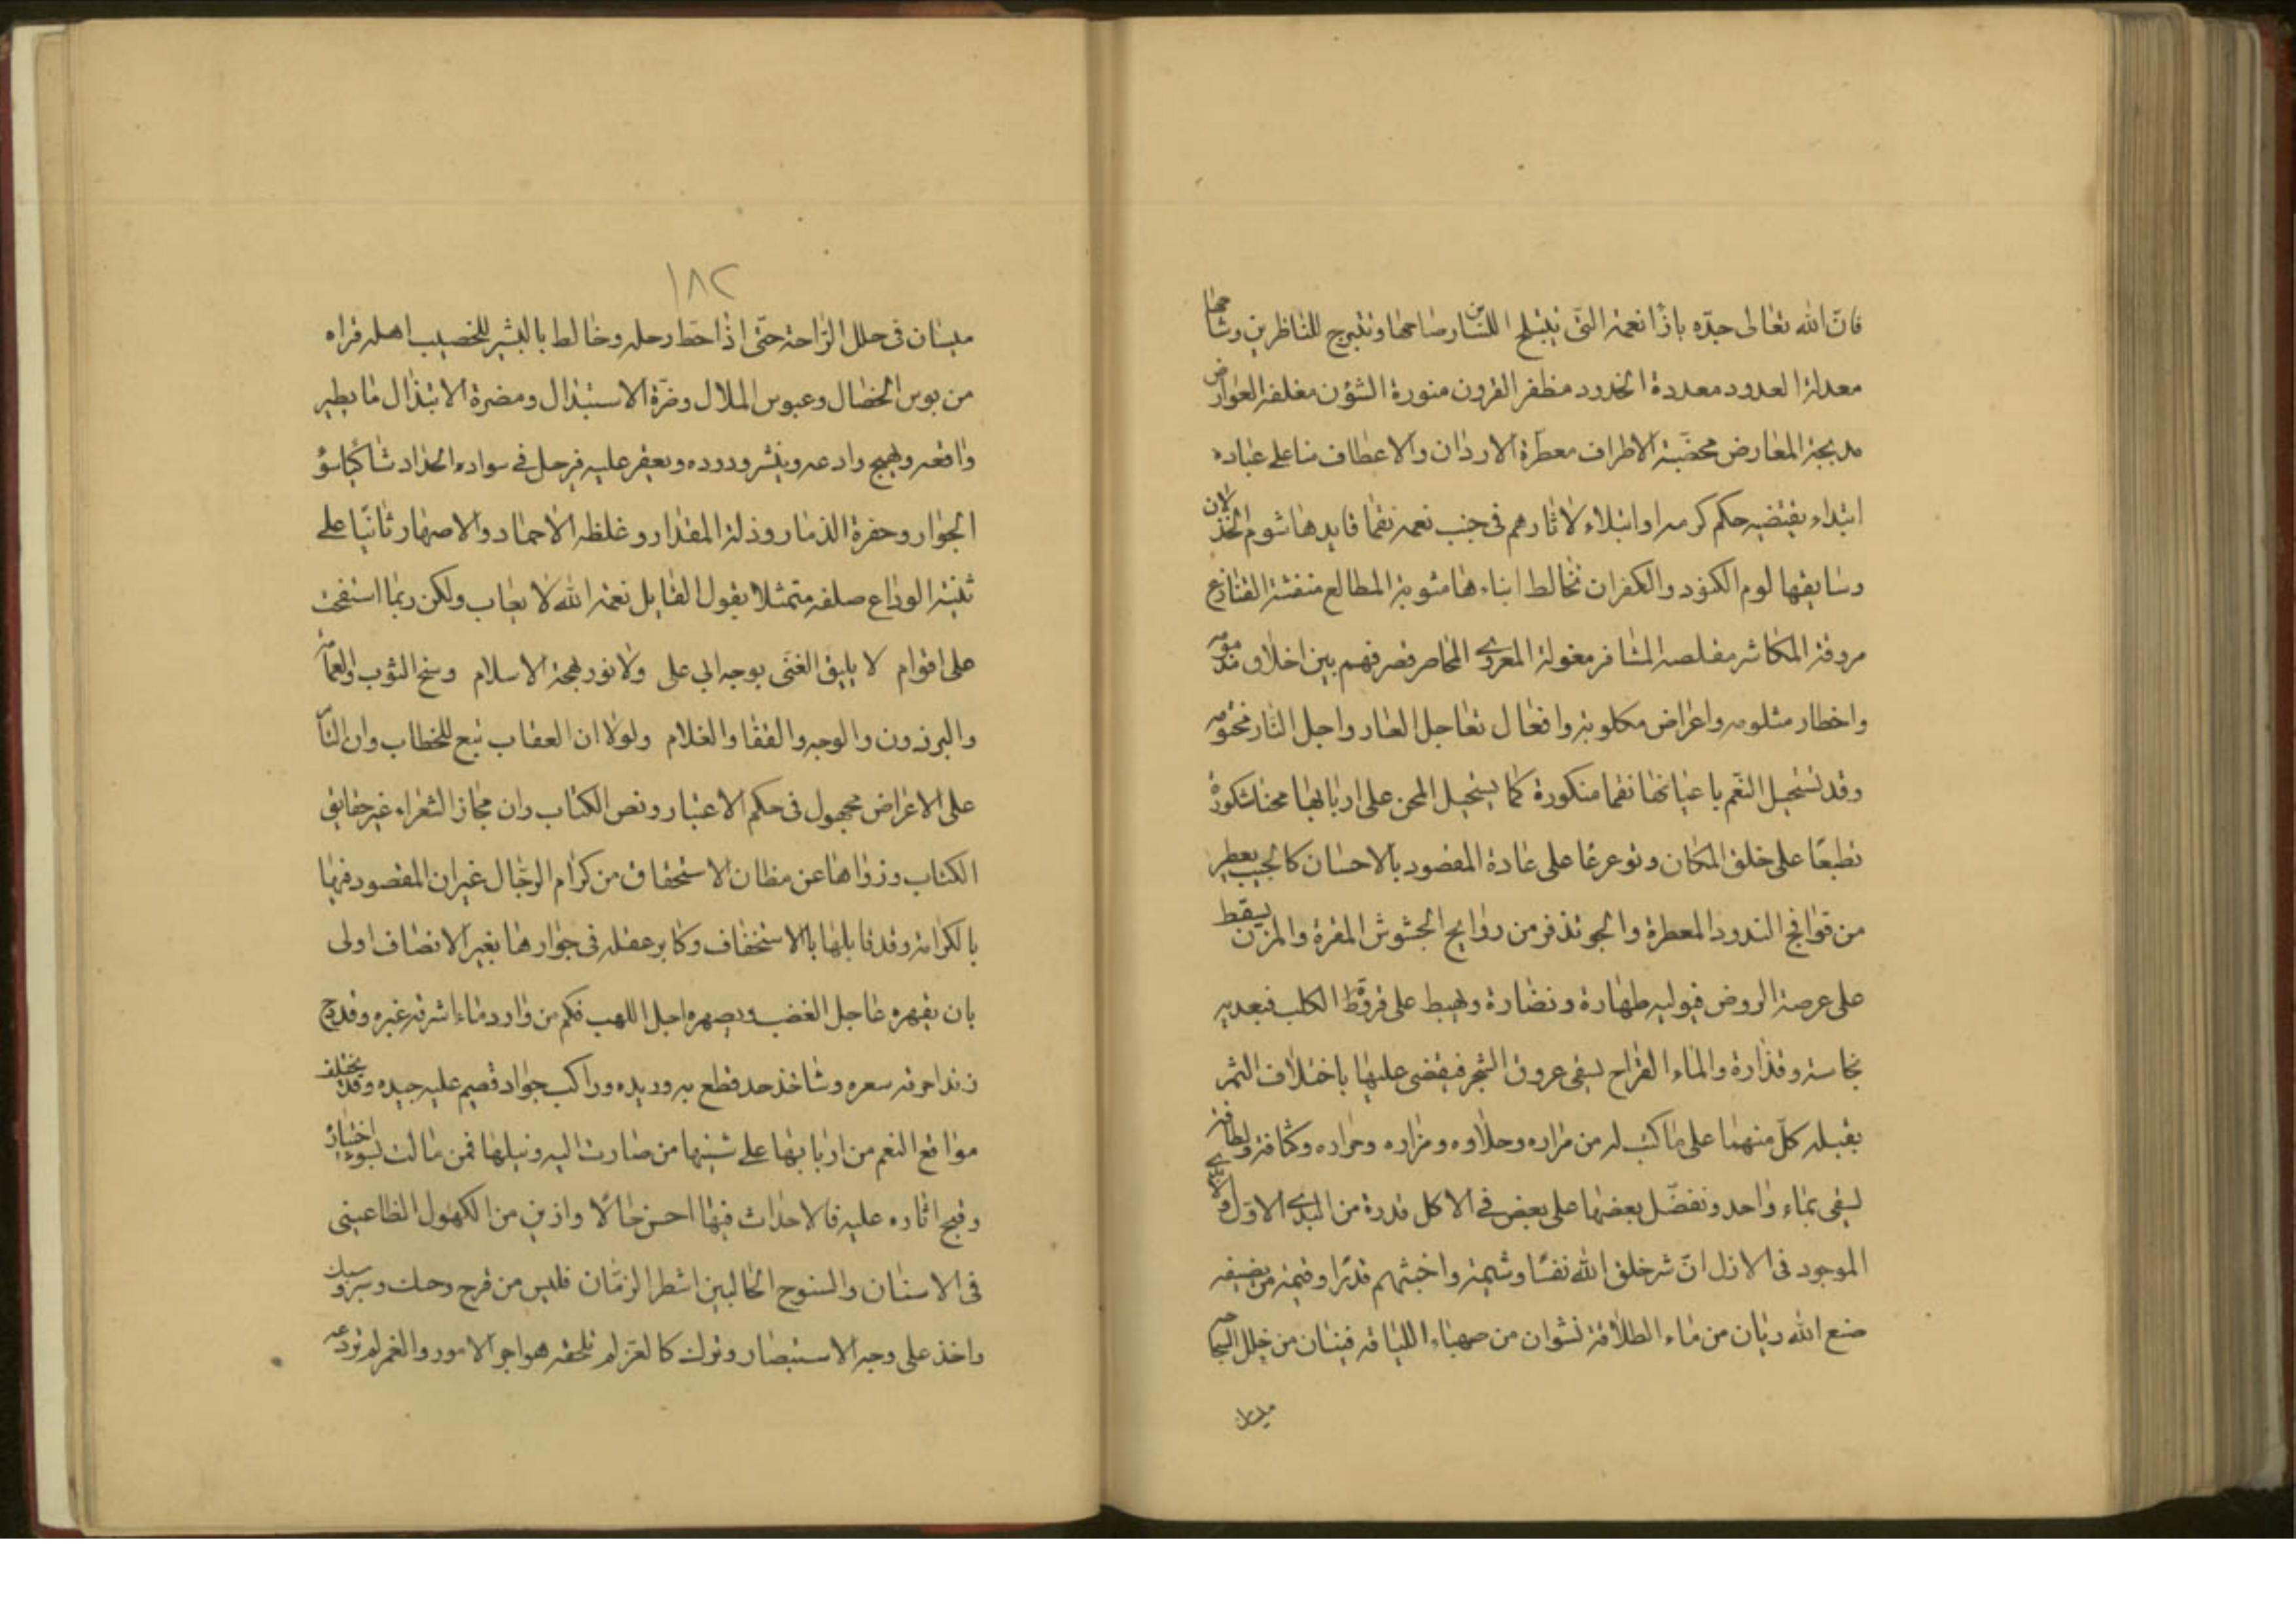 فانّ الله تعالى جدّه بازآ نعمه التى يتبلج للنّاس صباحها وتتبرج للناظرين وشاحها
معدلة العدود معددة الخدود مظفر القرون منورة الشؤن مغلفة العوارض
مدبجة المعارض مخضّبة الاطراف معطرة الاردان والاعطاف منا على عباده
ابتداء يقتضيه حكم كرمه او ابتلاء لاثارهم فى جنب نعمه نقما قايدها شوم الخذلان
وسايقها لوم الكنود والكفران تخالط ابناءها مشوبة المطالع منفشة القنازع
مروقة المكاشر مقلصة المشافر مغولة المعرى المحاصر فصرفهم بين اخلاق مذمومه
واخطار مثلومه واعراض مكلوبة وافعال تعاجل العار واجل النار مختومه
وقد تستحيل النّعم باعيانها نقما منكورة كما يستحيل المحن على اربابها محنا مشكورة
تطبعًا على خلق المكان وتوعرعا على عادة المقصود بالاحسان كالجيب يعطر
من قوافح الندود المعطرة والجو تذفر من روايح الجشوش المقرة والمزن يسقط
على عرصة الروض فيوليه طهارة ونضارة ويهبط على فروة الكلب فيعديه
نجاسة وقذارة والماء القراح يسقى عروق الشجر فيقضى عليها باختلاف الثمر
يقبله كلّ منهما على ما كتب له من مزاره وحلاوه ومزاره وحراره وكثافة ولطافة
يسقى بماء واحد ونفضّل بعضها على بعض فى الاكل قدرة من البدى الاوّل
الموجود فى الازل انّ شر خلق الله نفسًا وشيمة واخبثهم قدرًا وقيمة من يضيفه
صنع الله ريان من ماء الطلاقة نشوان من صهباء اللياقه فينان من خلل
ميسان
١٨٢
ميسان فى حلل الرّاحة حتى اذا حطّ رحله وخالط بالبشر للخصيب اهله قراه
من بوس الخصال وعبوس الملال وضرّة الاستبدال ومضرة الابتذال ما يطير
واقعه ويهيج وادعه وينشر ودوده ويعفر عليه فيرحل فى سواده الحداد شاكيًا سؤ
الجوار وحفرة الذمار وذلة المقدار وغلظة الاحماد والاصهار ثانيًا على
ثنية الوداع صلفه متمثلا بقول القايل نعمة الله لا يعاب ولكن ربما استقبحت
على اقوام لا يليق الغنى بوجه ابي على ولا نور بهجة الاسلام وسخ الثوب والعمامة
والبرذون والوجه والقفا والغلام ولولا ان العقاب تبع للخطاب وان الثأر
على الاعراض مجهول فى حكم الاعتبار ونص الكتاب وان مجاز الشعراء غير حقايق
الكتاب وزواها عن مظان الاستحقاق من كرام الرجال غير ان المقصود فيها
بالكرامة وقد قابلها بالاستخفاف وكابر عقله فى جوارها بغير الانصاف اولى
بان يقهره عاجل الغضب ويصهره اجل اللهب فكم من وارد ماء اشرقه غيره وقدح
زند احرقه سعره وشاخذ حد قطع به وريده وراكب جواد قصم عليه جيده وقد يختلف
مواقع النعم من اربابها على شبنها من صارت اليه ونيلها فمن مالت بسوء اختياره
وقبح اثاره عليه فالاحداث فيها احسن حالا وازين من الكهول الظاعنين
فى الاسنان والسنوح الحالبين اشطر الزمان فليس من فرح وحك وسبرو سبك
واخذ على وجه الاستبصار وترك كالغرّ لم تلحقه هواجر الامور والغمر لم تودعه